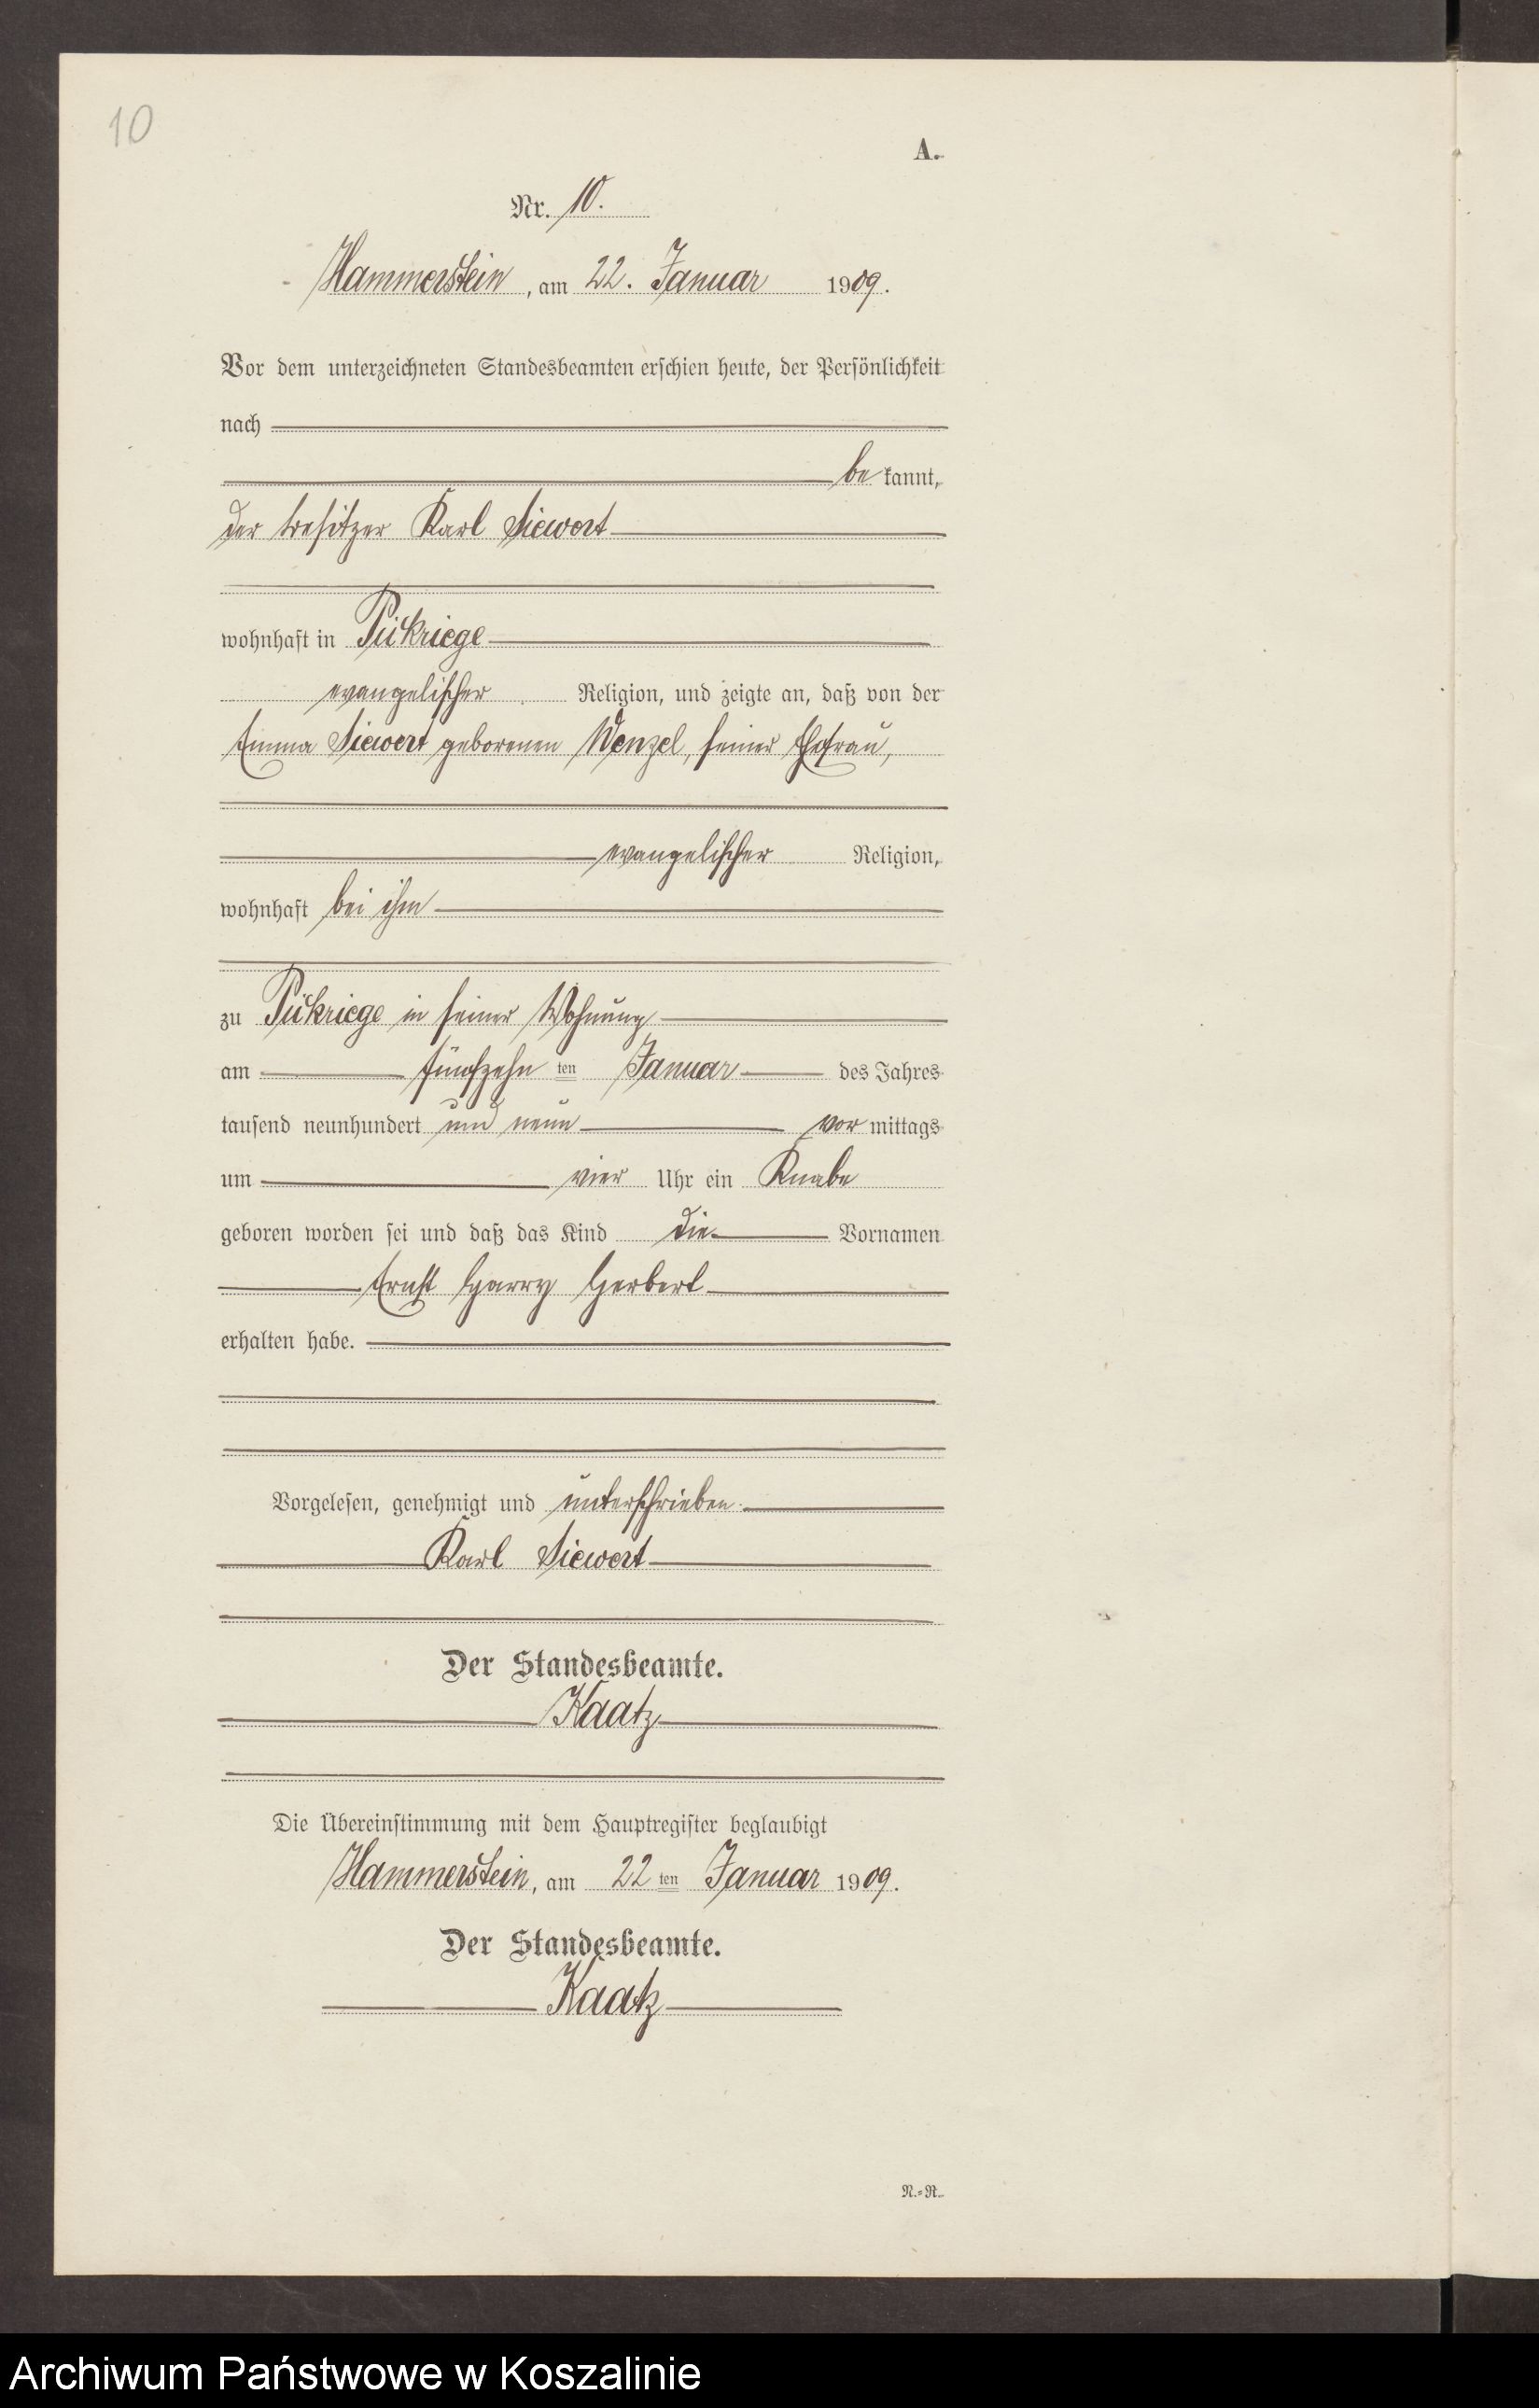 10
A.
Nr. 10.
Hammerstein, am 22. Januar 1909.
Vor dem unterzeichneten Standesbeamten erschien heute, der Persönlichkeit
nach
be kannt,
der Besitzer Karl Siewert
wohnhaft in Pükriege
evangelischer Religion, und zeigte an, daß von der
Emma Siewert geborenen Wenzel, seiner Ehefrau,
evangelischer Religion,
wohnhaft bei ihm
zu Pükriege in seiner Wohnung
am fünfzehn ten Januar des Jahres
tausend neunhundert und neun vor mittags
um vier Uhr ein Knabe
geboren worden sei und daß das Kind die Vornamen
Ernst Harry Herbert
erhalten habe.
Vorgelesen, genehmigt und unterschrieben.
Karl Siewert
Der Standesbeamte.
Kaatz
Die Übereinstimmung mit dem Hauptregister beglaubigt
Hammerstein, am 22 ten Januar 1909.
Der Standesbeamte.
Kaatz
N.=R.
Archiwum Państwowe w Koszalinie